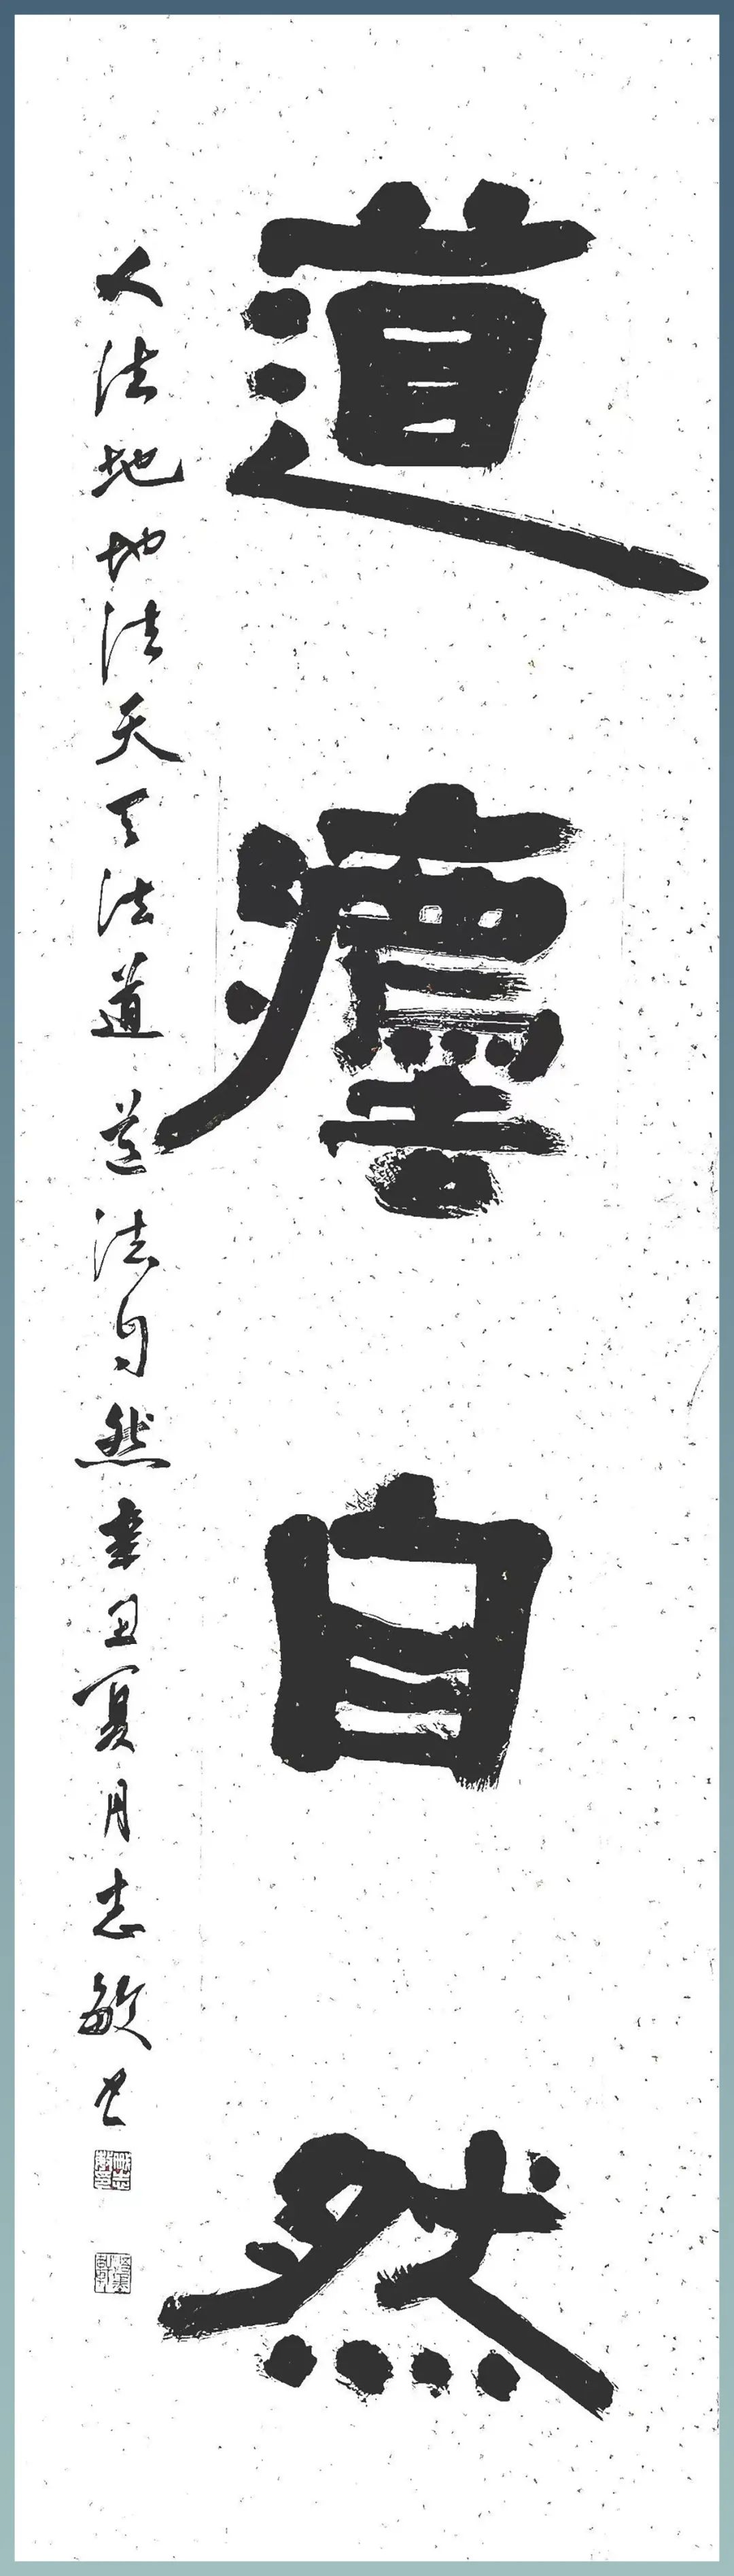 道灋自然
人法地地法天天法道道法自然辛丑夏月志敏书